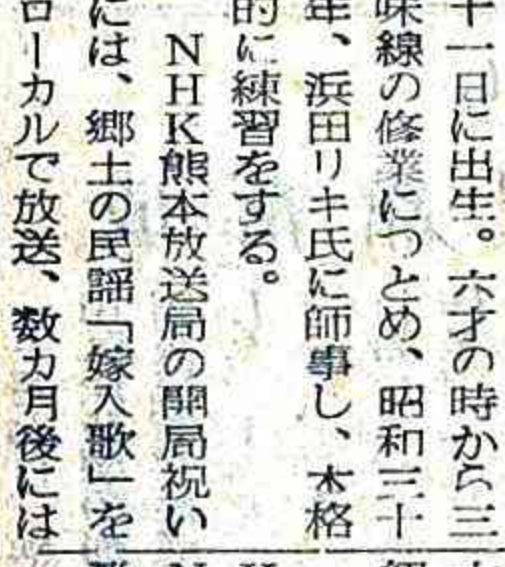 十一日に出生。六才の時から三
味線の修業につとめ、昭和三十
年、浜田リキ氏に師事し、本格
的に練習をする。
NHK熊本放送局の開局祝い
には、郷土の民謡「嫁入歌」を
ローカルで放送、数カ月後には